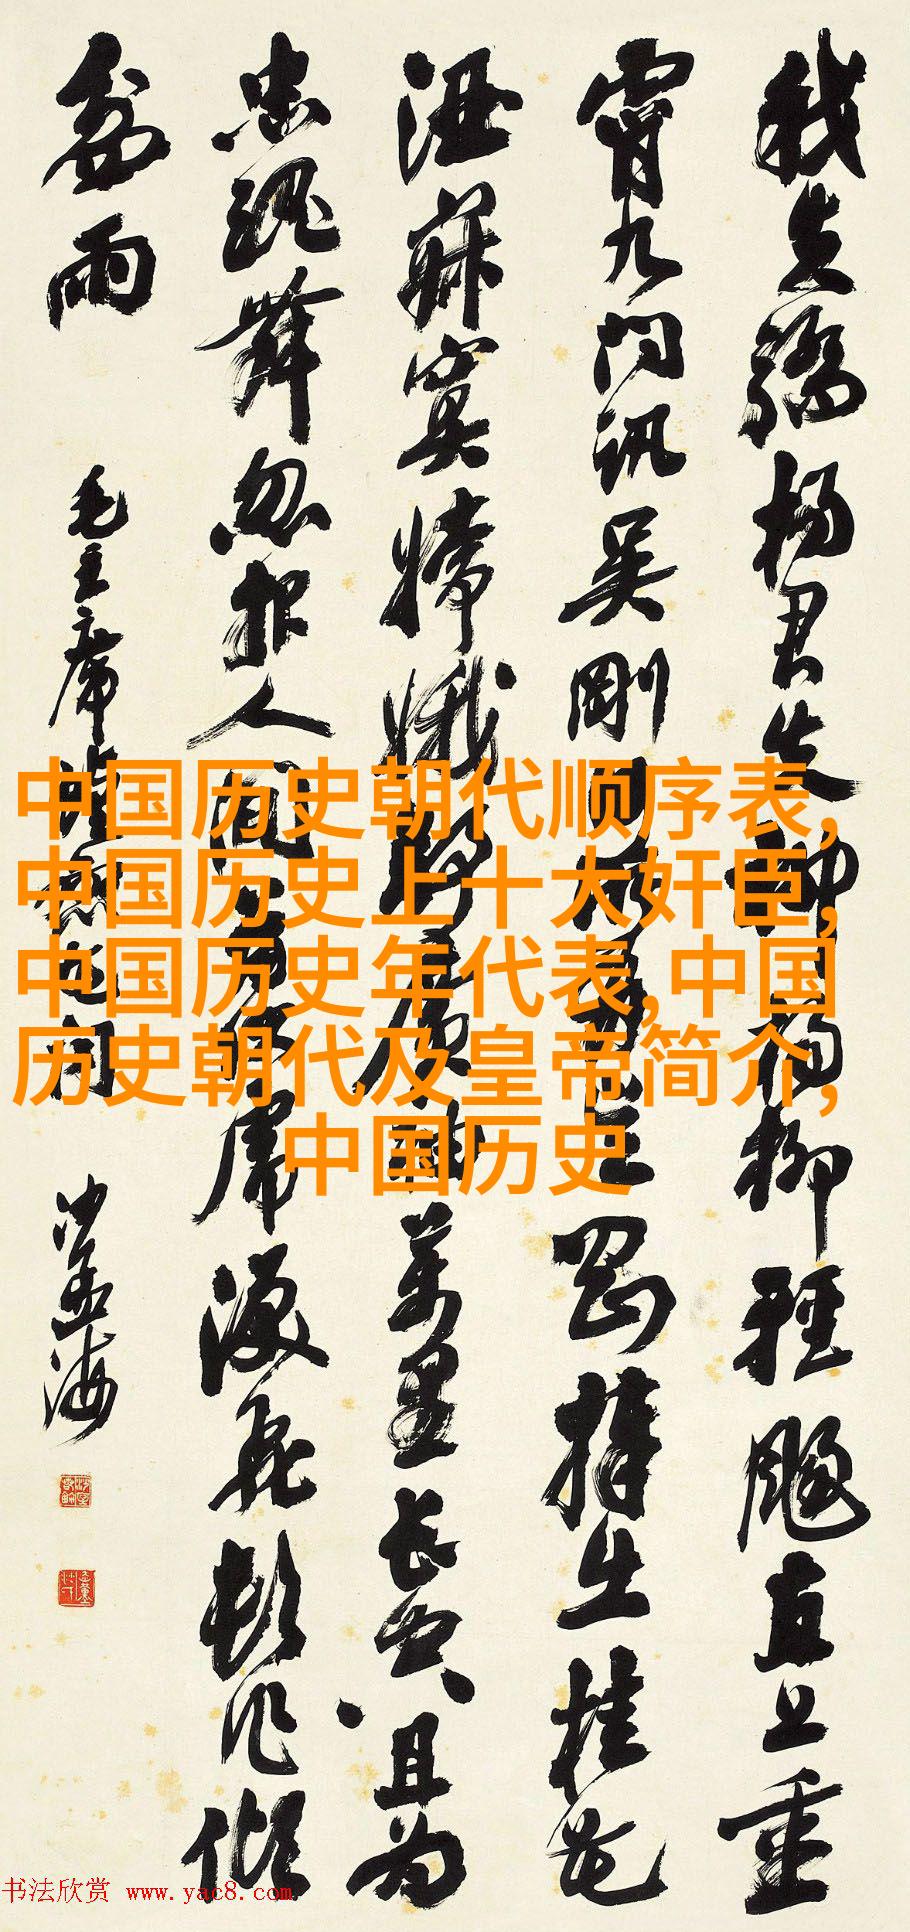 我失驕楊君失柳楊柳輕颺直上重
霄九問訊吳剛何所有吳剛捧出桂花
酒寂寞嫦娥舒廣袖萬里長空且為
忠魂舞忽报人间曾伏虎淚飛頓作傾
盆雨
毛主席蝶恋花词 沙孟海
中国历史朝代顺序表,
中国历史上十大奸臣,
中国历史年代表,中国
历史朝代及皇帝简介,
中国历史
书法欣赏 www.yac8.com